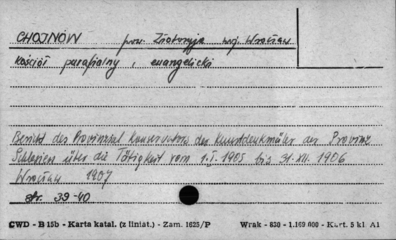 CHOJNÓW pow. Złotoryja woj. Wrocław
Kościół parafialny, ewangelicki
Bericht des Provinzial Konservators der Kunstdenkmäler der Provinz
Schlesien über die Tätigkeit vom 1.I.1905 bis 31.XII.1906
Wrocław 1907
str. 39-40
CWD - B 15b - Karta katal. (z liniat.) - Zam. 1625/P Wrak - 838 - 1.169 800 - Kart. 5 kl. A1